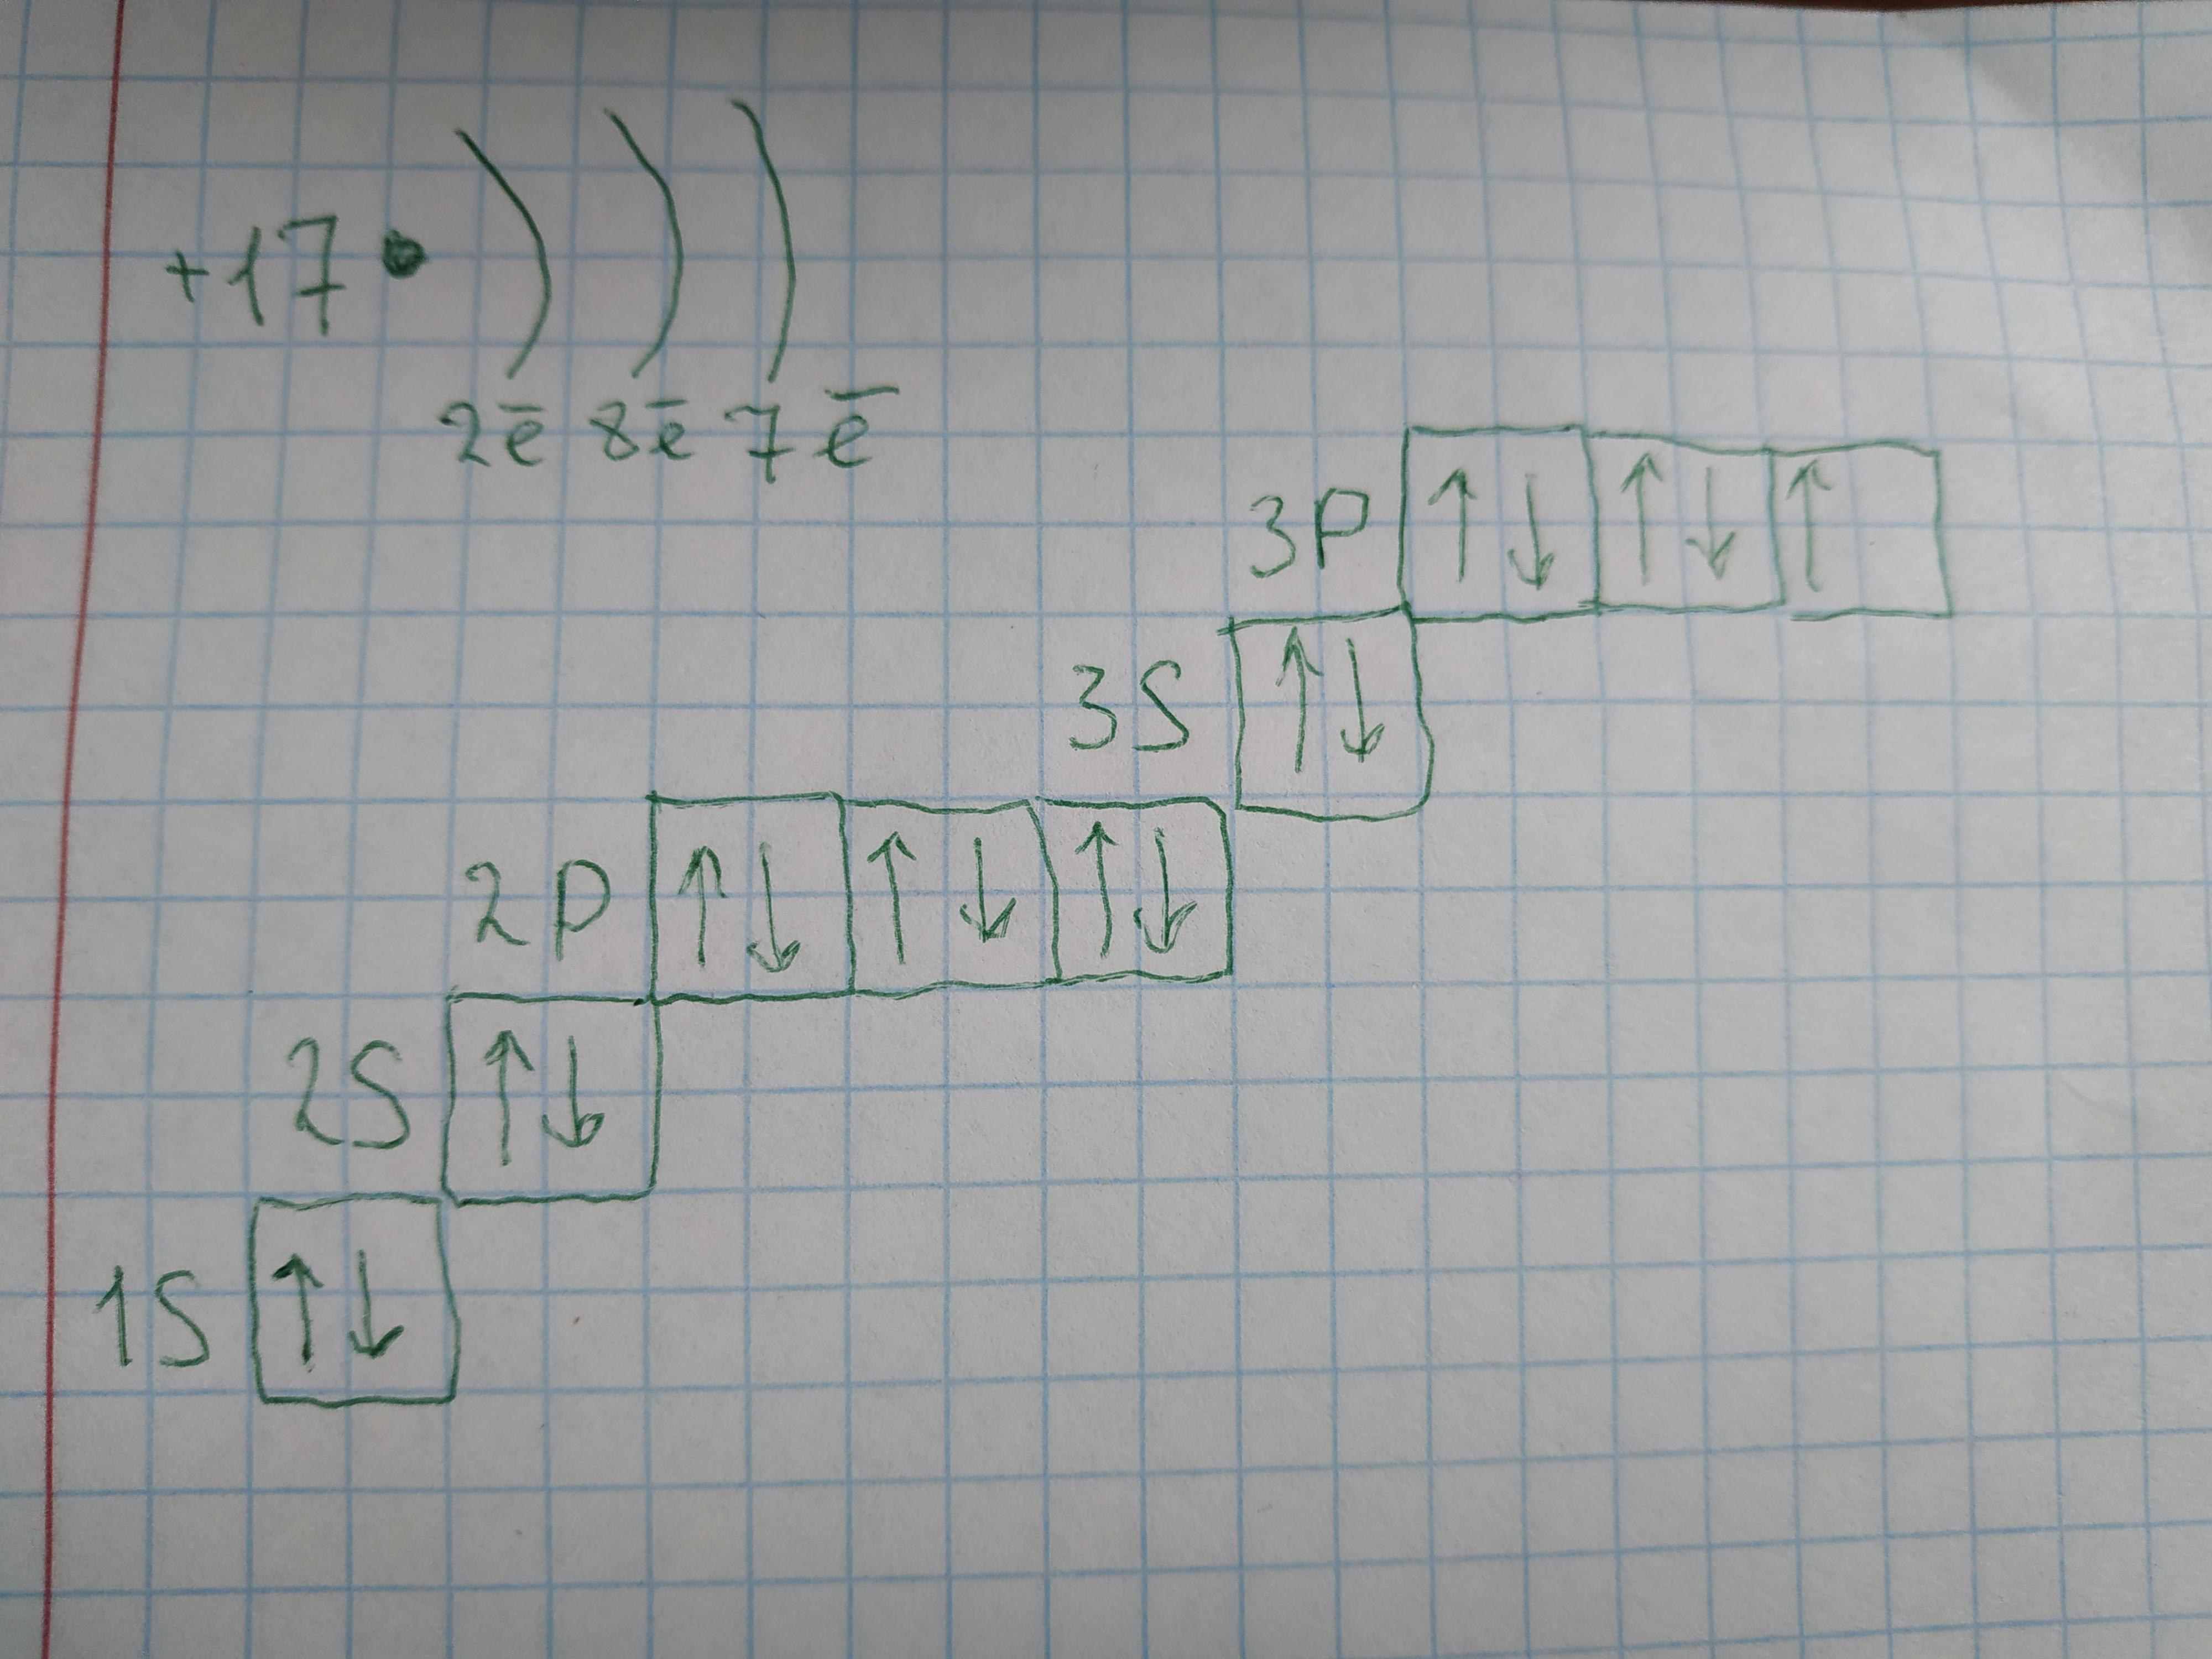 +17
2ē 8ē 7ē
3P ↑↓ ↑↓ ↑
3S ↑↓
2P ↑↓ ↑↓ ↑↓
2S ↑↓
1S ↑↓